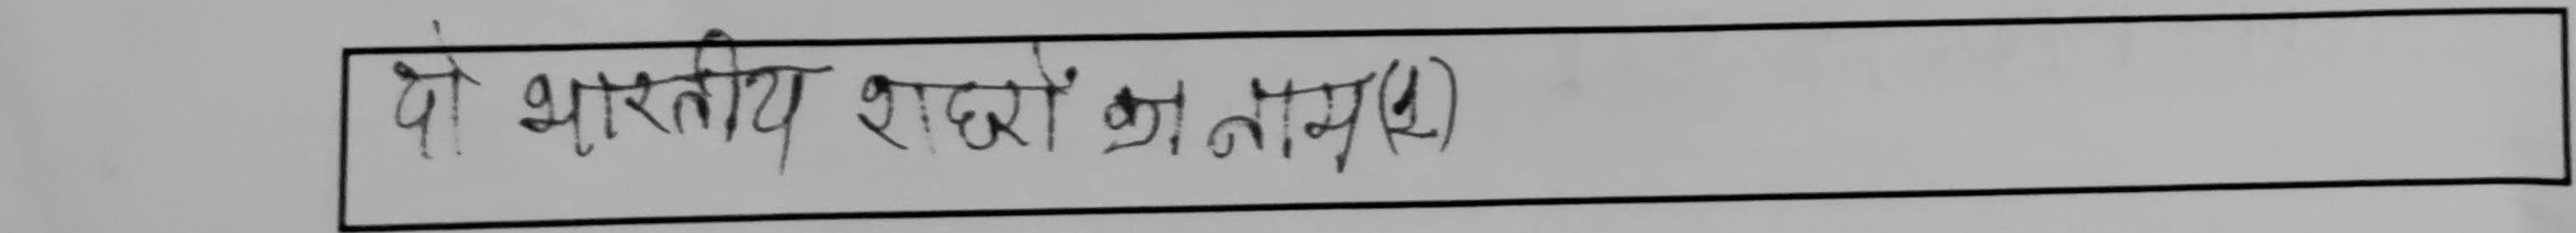 दो भारतीय शहरों का नाम (2)